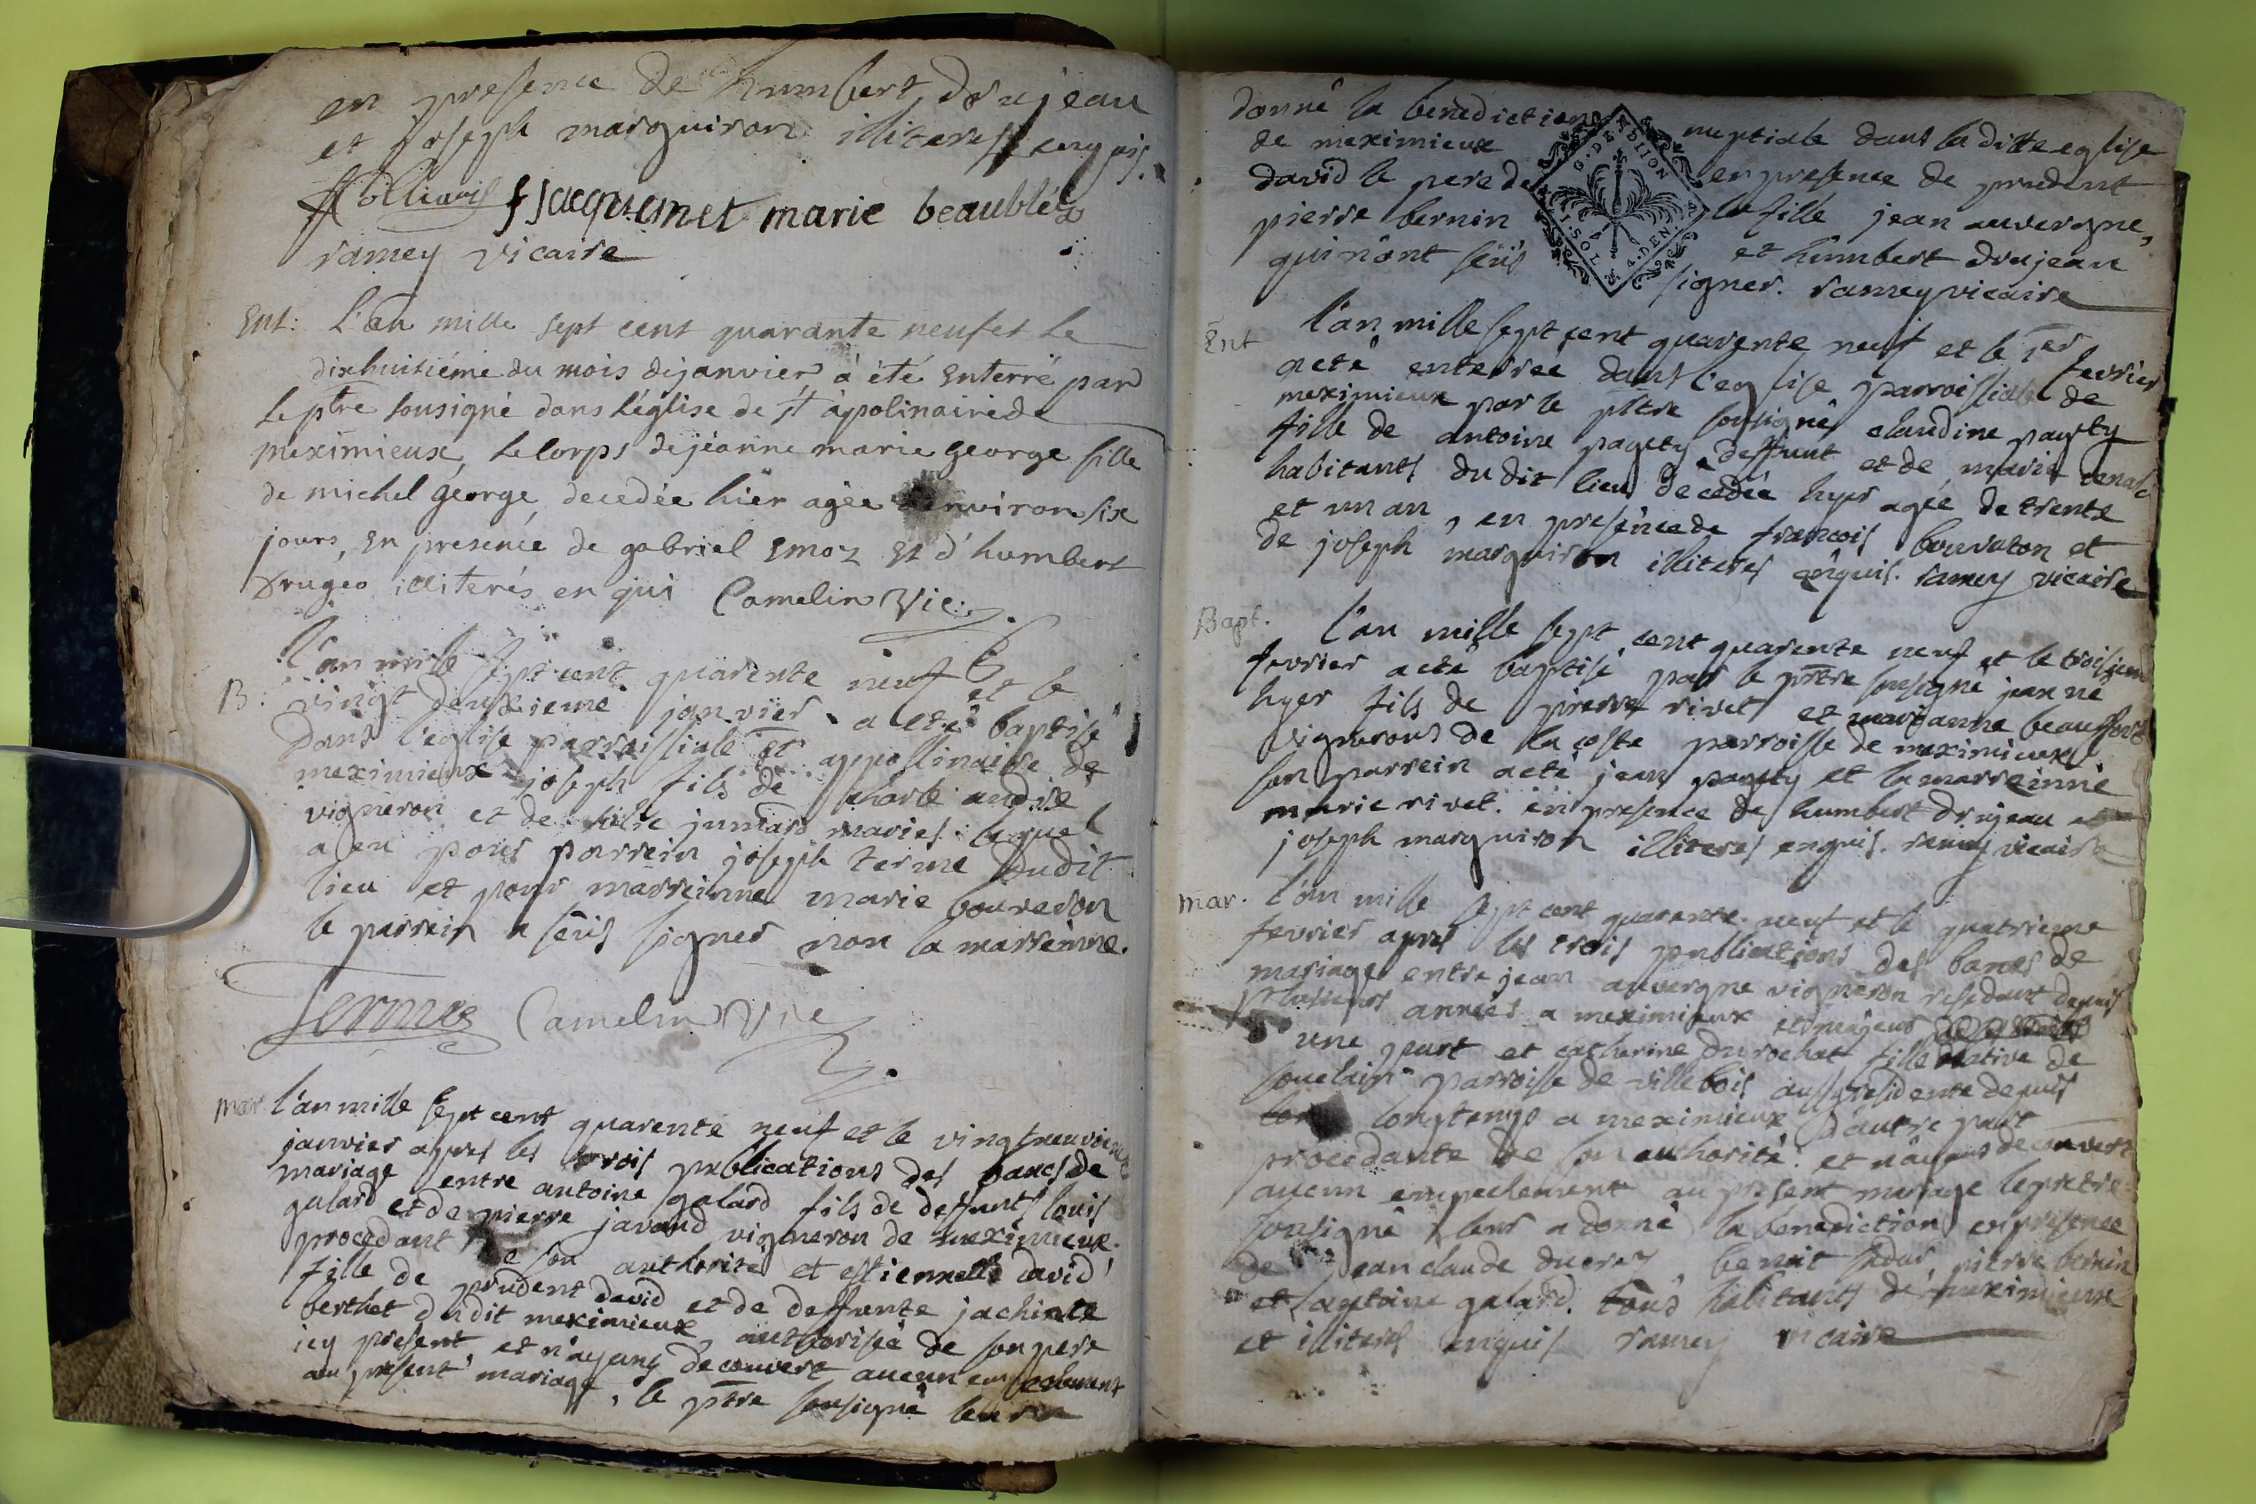 en presence de humbert drujeau
et joseph marguiron illiteres enquis.
f jacquemet marie beaublé
ramey vicaire
Ent: L'an mille sept cent quarante neuf et le
dixhuitiéme du mois de janvier, à été Enterré par
le ptre sousigné dans l'église de st àpolinaire de
meximieux, le corps de jeanne marie george fille
de michel george, decedée hïer agée d'environ six
jours, En presence de gabriel Emoz Et d'humbert
drugeo illiterés en qui Camelin Vic:
l'an mille sept cent quarente neuf et le
B: vingt deuxieme janvier a eté baptisé
dans l'eglise parroissiale st appollinaire de
meximieux joseph fils de charle andre
vigneron et de jumard maries: lequel
a eu pour parrein joseph terme dudit
lieu et pour marreinne marie bourdon
le parrein a seus signer non la marreinne.
Terme Camelin Vic
mar l'an mille sept cent quarente neuf et le vingtneuvoieme
janvier apres les trois publications des bancs de
mariage entre antoine galard fils de deffunts louis
galard et de pierre javaud vigneron de meximieux.
procedant de son authorité et estiennette david
fille de prudent david et de deffunte jachinte
berthet dudit meximieux authorisée de son pere
icy present, et n'ayant decouvert aucun empechement
au present mariage, le ptre sousigné leur a
donné la benediction nuptiale dans la ditte eglise
de meximieux en presence de prudent
david le pere de la fille jean auvergne,
pierre bernin et humbert drujean
qui n'ont seus signer. ramey vicaire
G. DE DIJON
1. SOL 4. DEN.
Ent l'an mille sept cent quarente neuf et le 1er fevrier
aeté enterrée dans l'eglise parroissiale de
meximieux par le ptre sousigné claudine pagety
fille de antoine pagety deffunt et de marie
habitants du dit lieu decedée hyer agée de trente
et un an, en presence de francois bourdon et
de joseph marguiron illiteres enquis. ramey vicaire
Bapt. l'an mille sept cent quarente neuf et le troisieme
fevrier aeté baptisé par le prtre sousigné jean né
hyer fils de pierre rivet et marianne beauffort
vignerons de la coste parroisse de meximieux
son parrein aeté jean pagety et la marreinne
marie rivet. en presence de humbert drujeau et
joseph marguiron illiteres enquis. ramey vicaire
mar. l'an mille sept cent quarente neuf et le quatrieme
fevrier apres les trois publications des bancs de
mariage entre jean auvergne vigneron residant depuis
plusieurs années a meximieux et majeur
une part et catherine durochat fille native de
souclain parroisse de villebois aussy residente depuis
longtemps a meximieux d'autre part
procedante de son authorité. et n'ayant decouvert
aucun empechement au present mariage le pretre
sousigné leur a donné la benediction en presence
de jean claude ducrez benoit pierre bernin
et antoine galard. tous habitants de meximieux
et illiteres enquis ramey vicaire